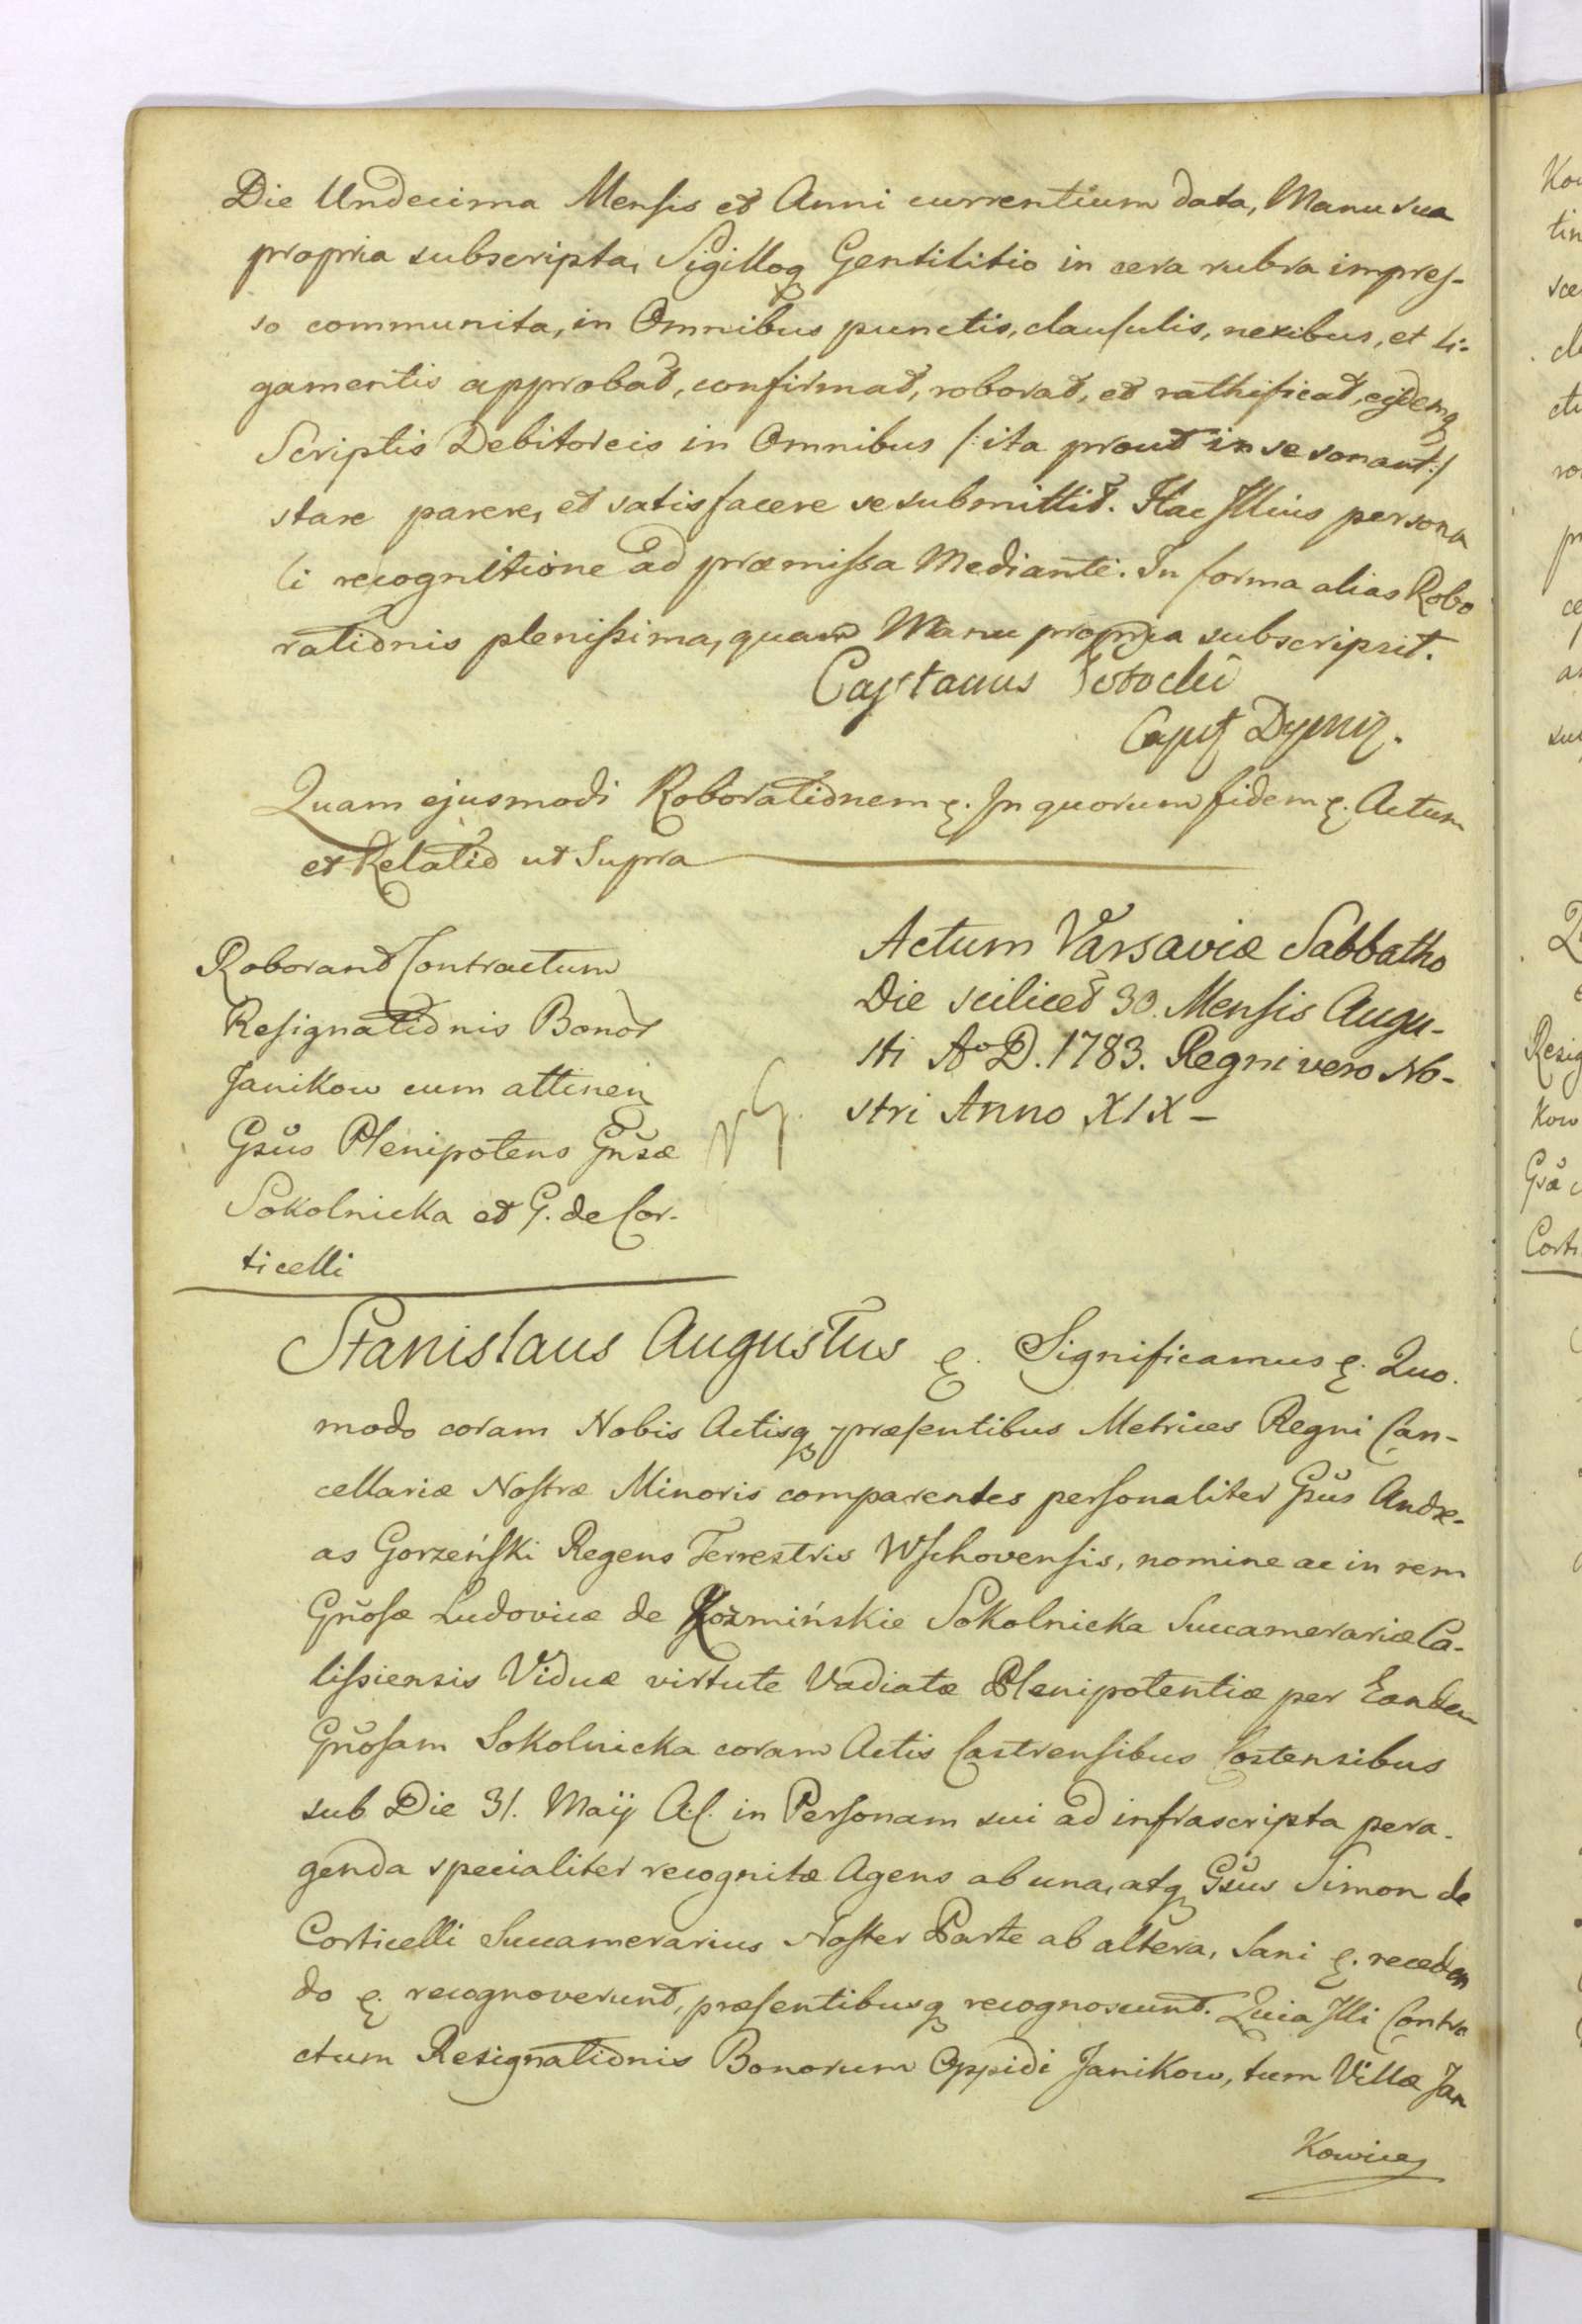 Die Undecima Mensis et Anni currentium data, Manu sua
propria subscripta, Sigilloq Gentilitio in cera rubra impres-
so communita, in Omnibus punctis, clausulis, nexibus, et li-
gamentis approbat, confirmat, roborat, et rathificat, ejsdemq
Scriptis Debitoreis in Omnibus /: ita prout in se sonant :/
stare parere, et satisfacere se submittit. Hac Illius persona
li recognitione ad præmissa Mediante. In forma alias Robo
rationis plenissima, quam Manu propria subscripsit.
Cajetanus
Quam ejusmodi Roborationem &. In quorum fidem &. Actum
et Relatio ut Supra
Roborant Contractum
Resignationis Bonor
Janikow cum attinen
Gsus Plenipotens Gnsæ
Sokolnicka et G. de Cor-
ticelli
Actum Varsaviæ Sabbatho
Die scilicet 30. Mensis Augu-
sti Ao D. 1783. Regni vero No-
stri Anno XIX -
Stanislaus Augustus &. Significamus &. Quo.
modo coram Nobis Actisq præsentibus Metrices Regni Can-
cellariæ Nostræ Minoris comparentes personaliter Gsus Andre-
as Gorzeński Regens Terrestris Wschovensis, nomine ac in rem
Gnosæ Ludovicæ de Kozmińskie Sokolnicka Succamerariæ Ca-
lissiensis Viduæ virtute Vadiatæ Plenipotentiæ per Eandem
Gnosam Sokolnicka coram Actis Castrensibus Costensibus
sub Die 31. Maij A. C. in Personam sui ad infrascripta pera-
genda specialiter recognitæ Agens ab una, atq Gsus Simon de
Corticelli Succamerarius Noster Parte ab altera, Sani &. receden
do &. recognoverunt, præsentibusq recognoscunt. Quia Illi Contra
ctum Resignationis Bonorum Oppidi Janikow, tum Villæ Jan
Kowice